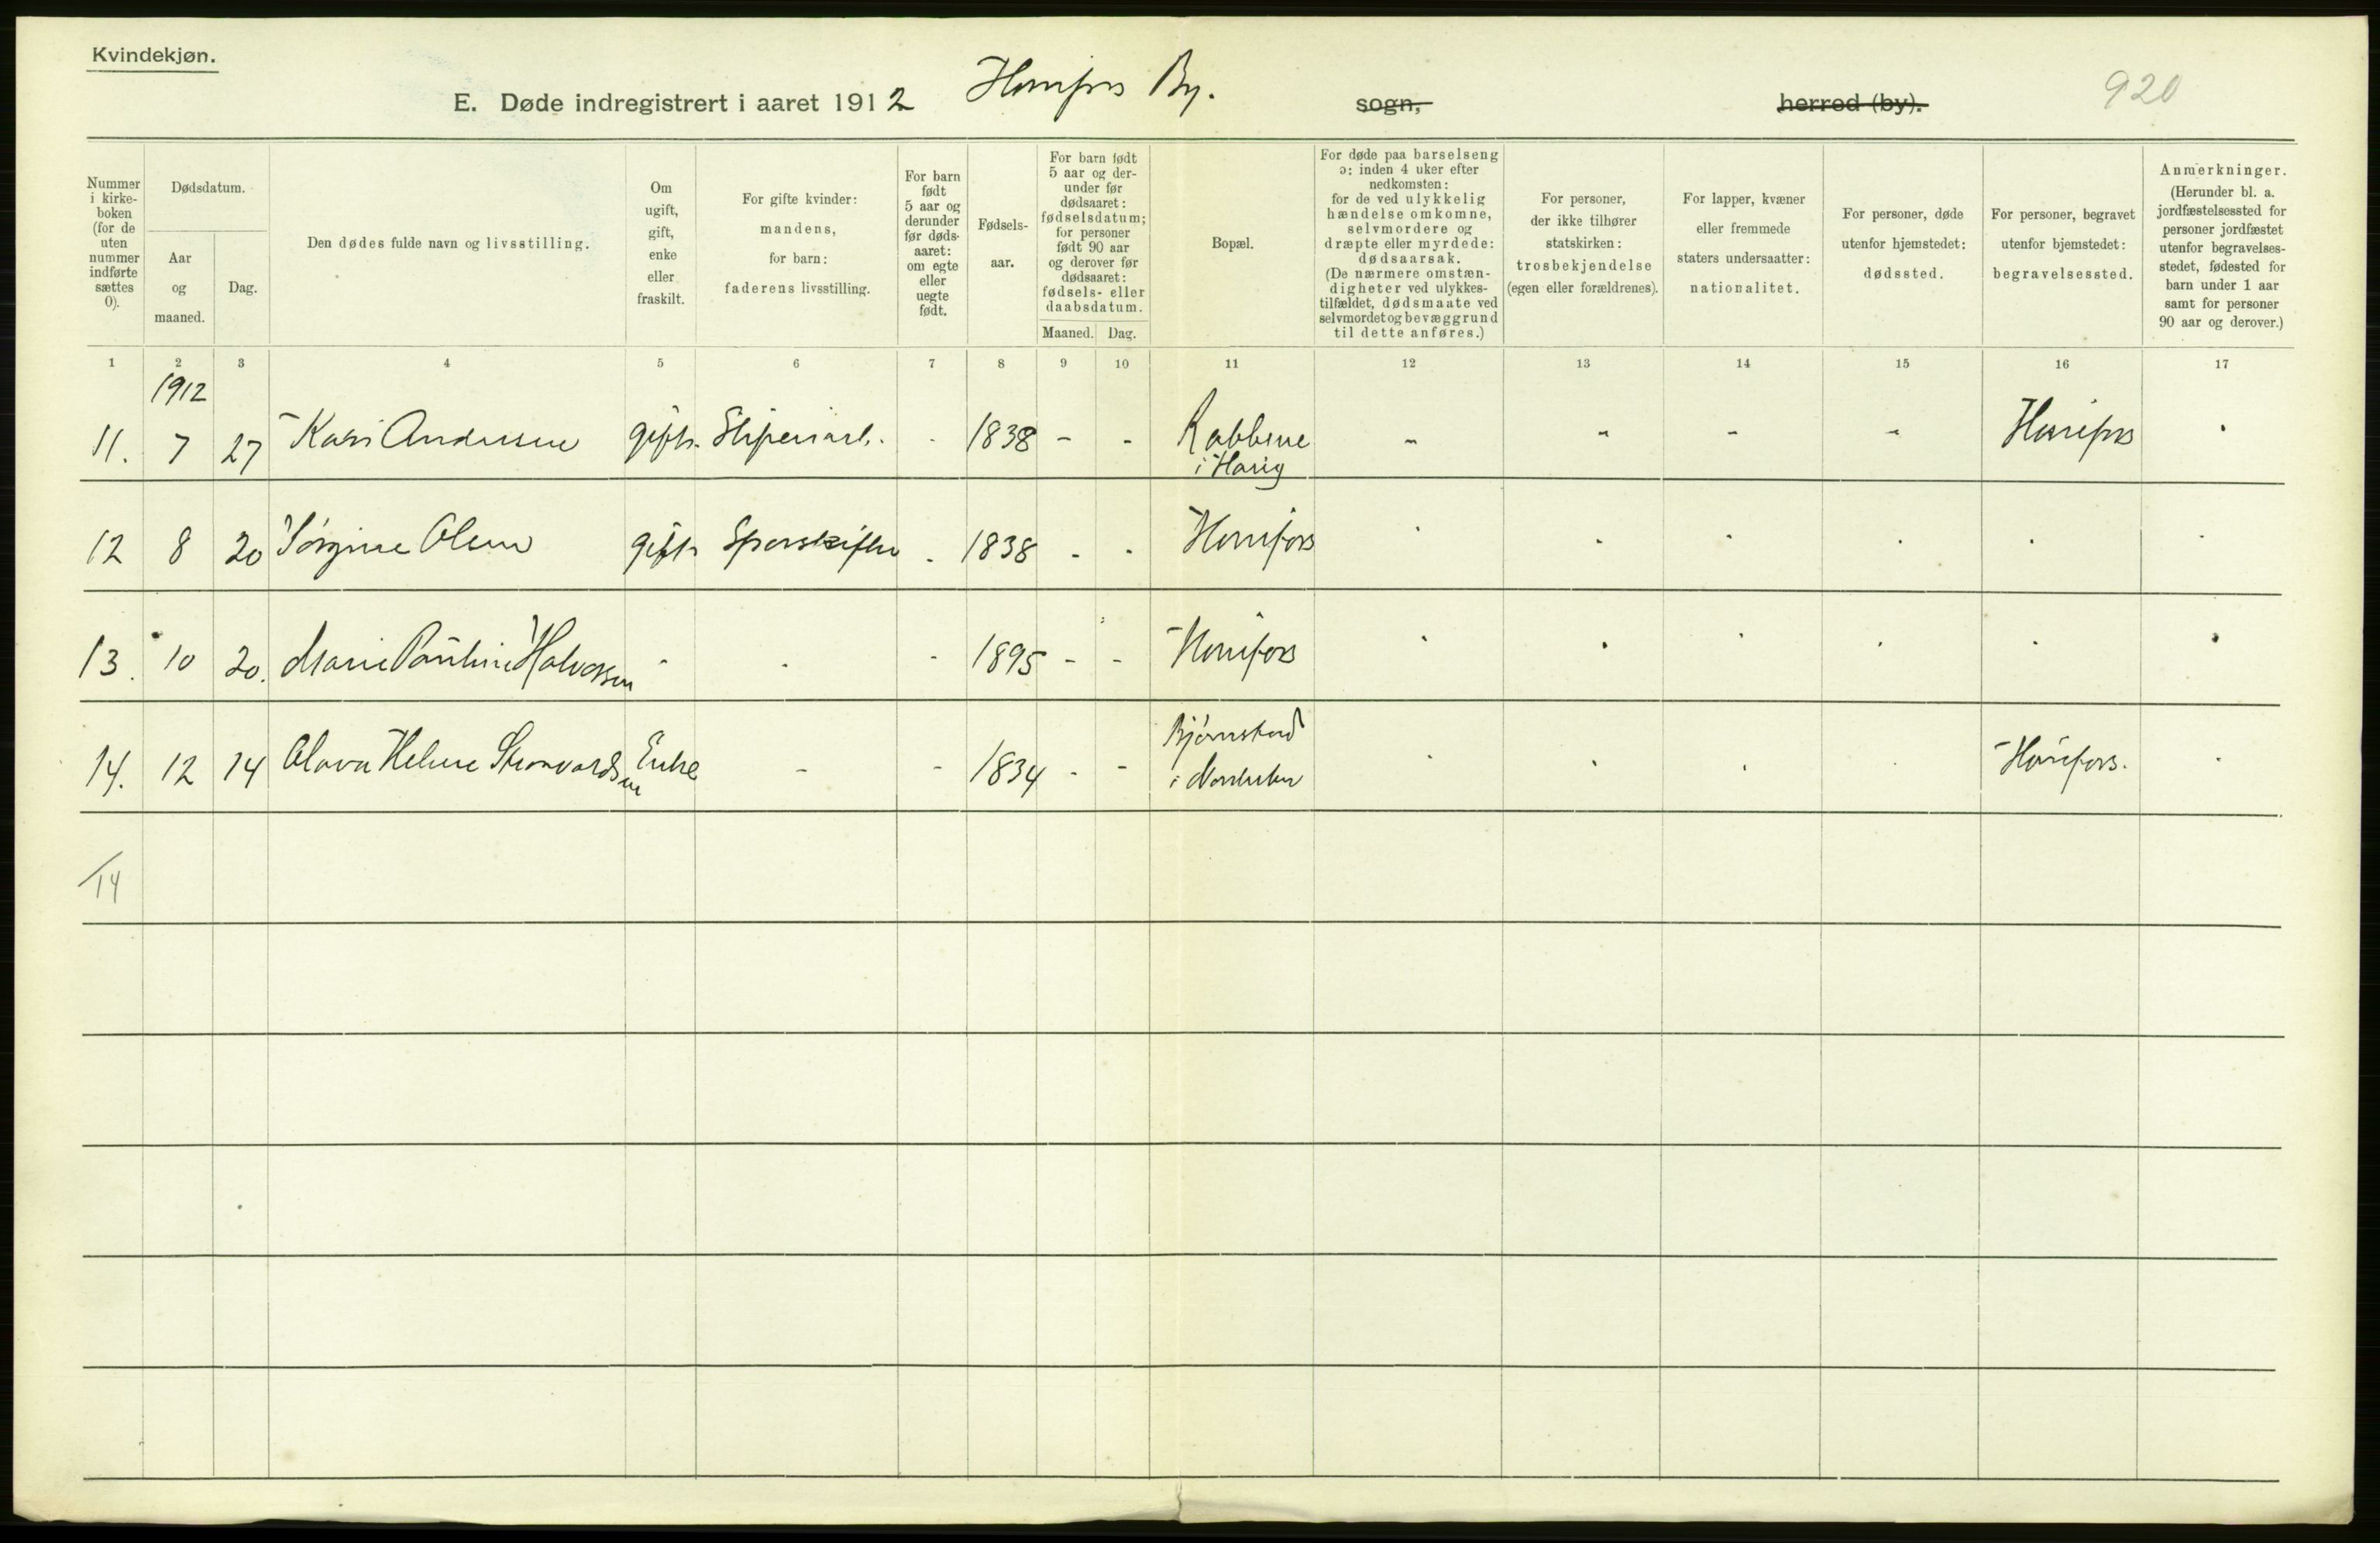 Kvindekjøn.
E. Døde indregistrert i aaret 1912 Hønefoss By. sogn, herred (by). 920
Nummer i kirke-boken (for de uten nummer indførte sættes 0).
Dødsdatum.
Aar og maaned.
Dag.
Den dødes fulde navn og livsstilling.
Om ugift, gift, enke eller fraskilt.
For gifte kvinder: mandens, for barn: faderens livsstilling.
For barn født 5 aar og derunder før døds-aaret: om egte eller uegte født.
Fødsels-aar.
For barn født 5 aar og der-under før dødsaaret: fødselsdatum; for personer født 90 aar og derover før dødsaaret: fødsels- eller daabsdatum.
Maaned. Dag.
Bopæl.
For døde paa barselseng ɔ: inden 4 uker efter nedkomsten: for de ved ulykkelig hændelse omkomne, selvmordere og dræpte eller myrdede: dødsaarsak. (De nærmere omstæn-digheter ved ulykkes-tilfældet, dødsmaate ved selvmordet og bevæggrund til dette anføres.)
For personer, der ikke tilhører statskirken: trosbekjendelse (egen eller forældrenes).
For lapper, kvæner eller fremmede staters undersaatter: nationalitet.
For personer, døde utenfor hjemstedet: dødssted.
For personer, begravet utenfor hjemstedet: begravelsessted.
Anmerkninger. (Herunder bl. a. jordfæstelsessted for personer jordfæstet utenfor begravelses-stedet, fødested for barn under 1 aar samt for personer 90 aar og derover.)
1 2 3 4 5 6 7 8 9 10 11 12 13 14 15 16 17
1912
11. 7 27 Kari Andersen gift. Sliperiarb. - 1838 - - Rabbene i Norderhov - - - - Hønefoss
12 8 20 Jørgine Olsen gift Sporskifter - 1838 - - Hønefoss
13. 10 20. Marie Pauline Halvorsen - - - 1895 - - Hønefoss
14. 12 14 Olava Helene Enke - - 1834 - - Bjørnstad i Norderhov Hønefoss.
14